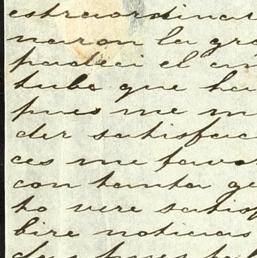 estraordinar
naron la gra
padeci el am
tube que ha
pues me m
der satisfac
ces me favo
con tanta ge
to vere satisf
bire noticias